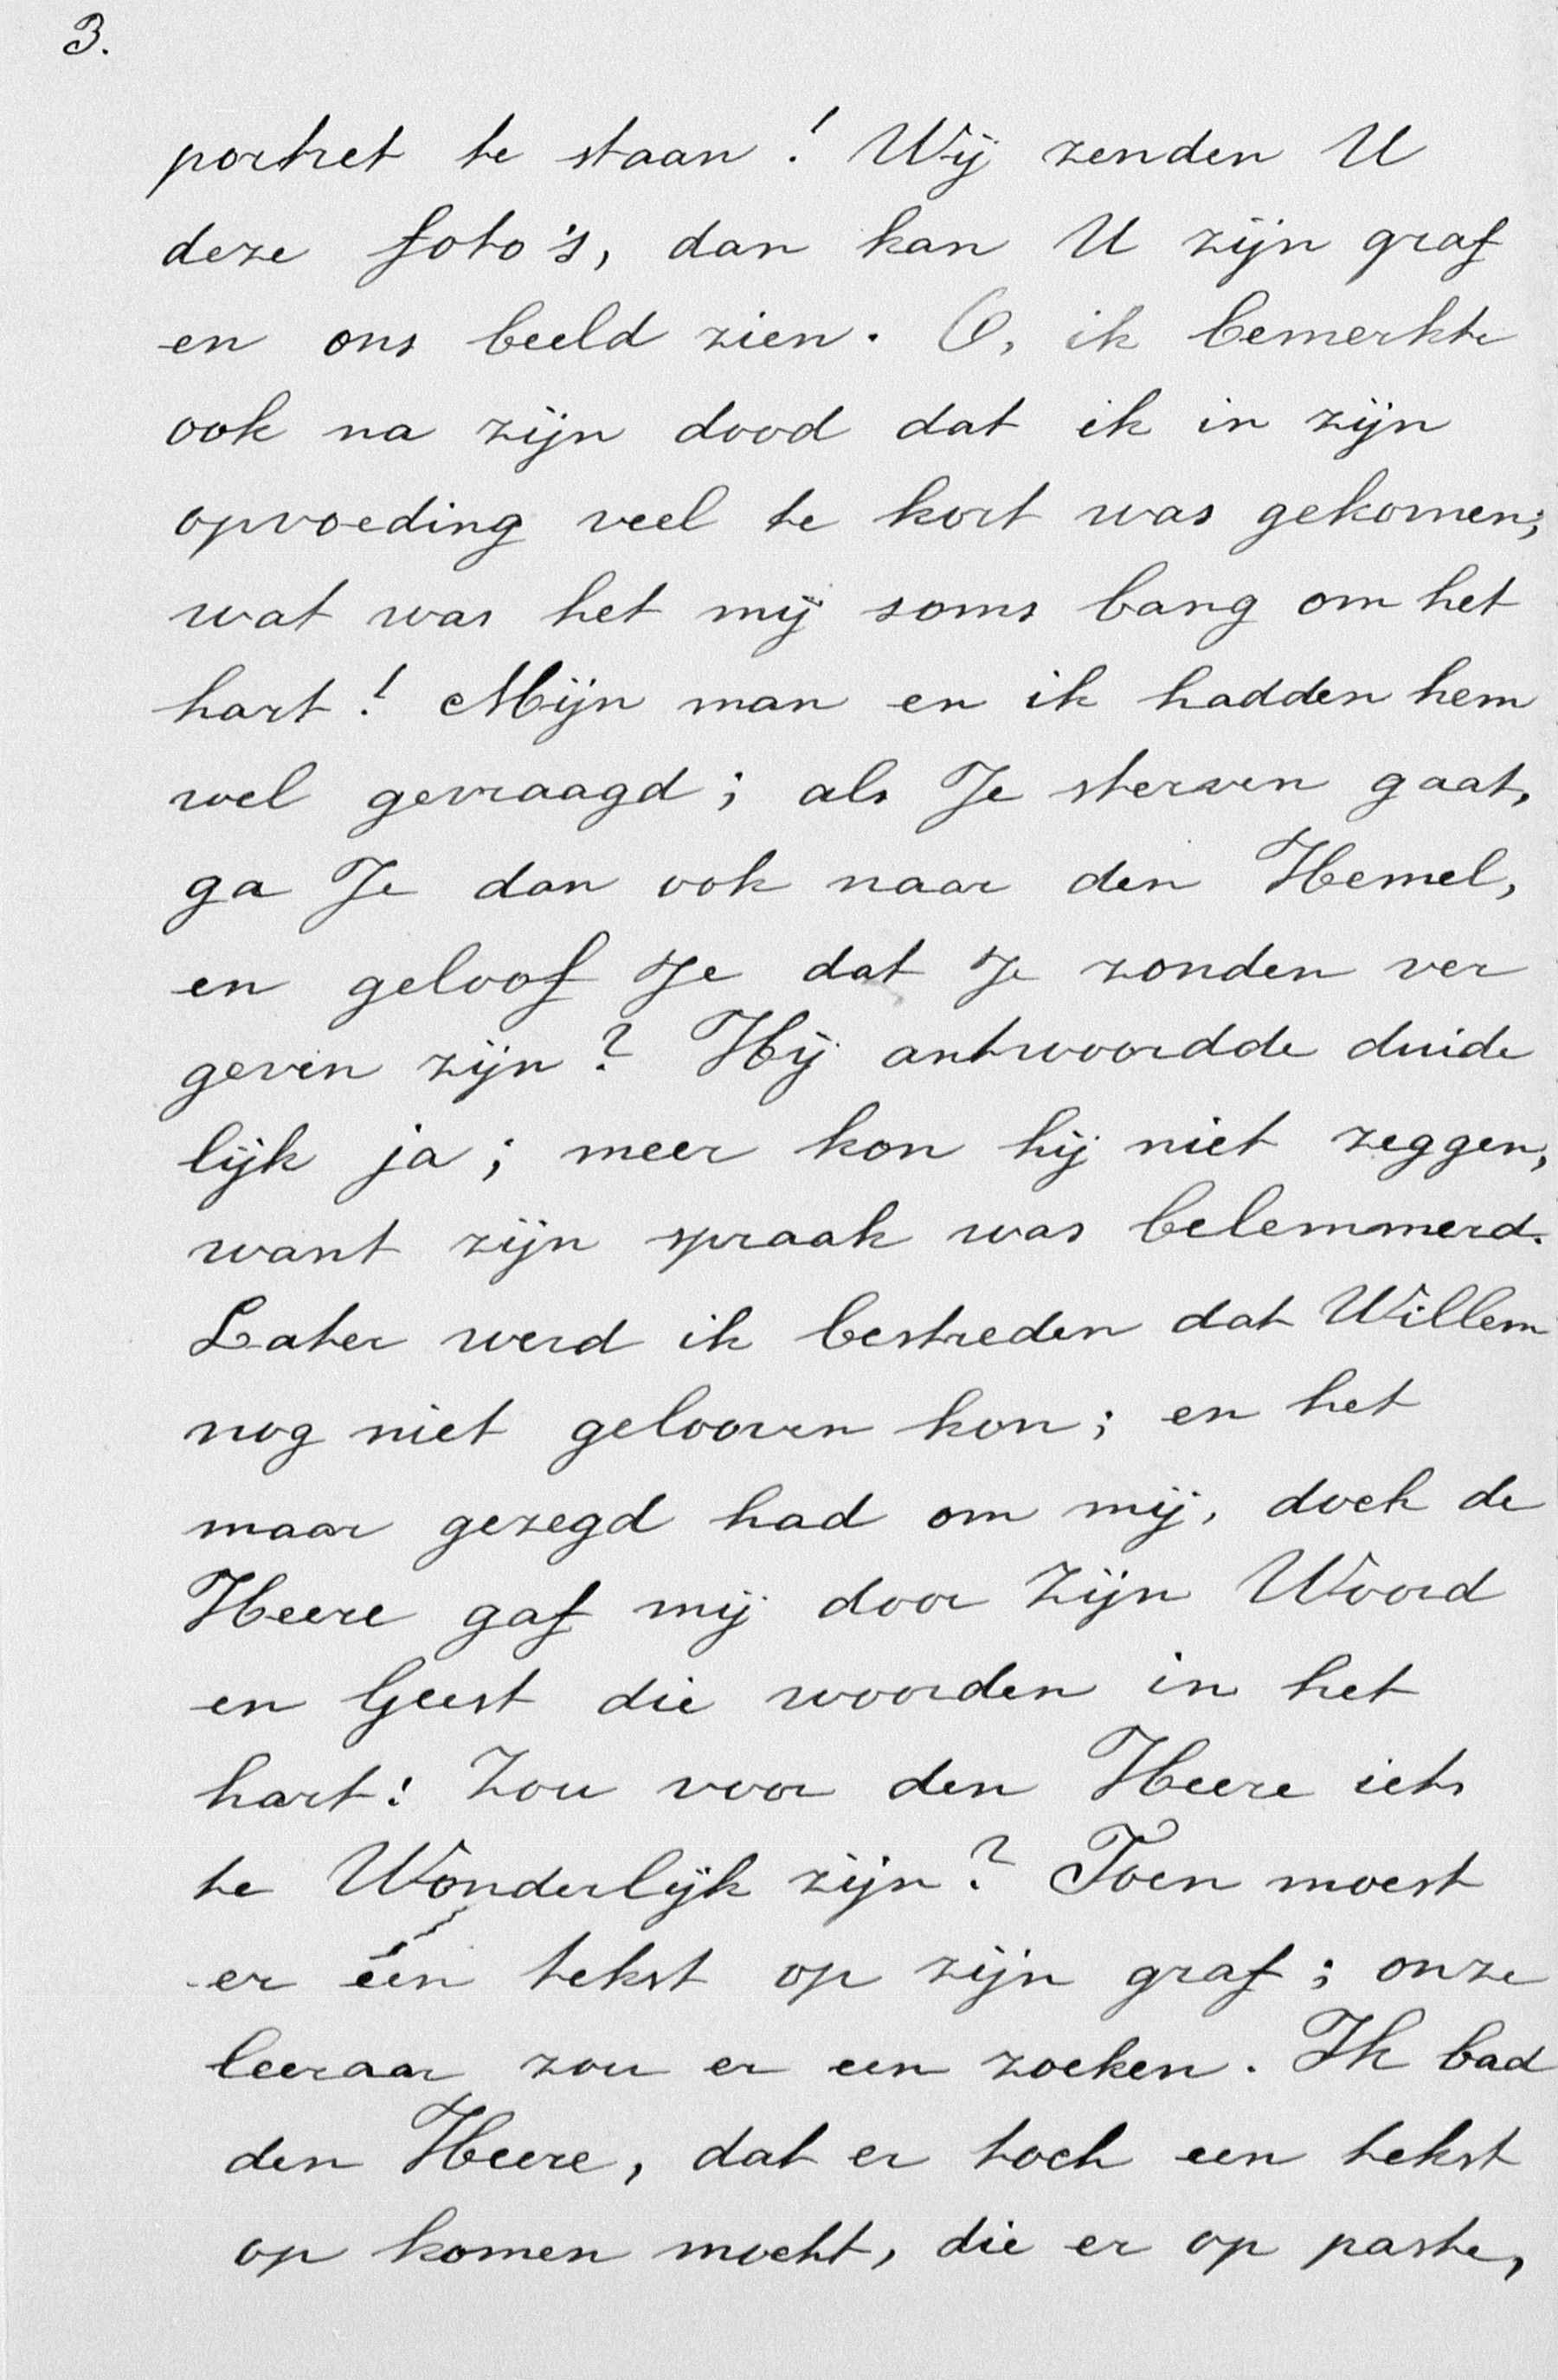 3.
portret te staan! Wij zenden U
deze foto's, dan kan U zijn graf
en ons beeld zien. O, ik bemerkte
ook na zijn dood dat ik in zijn
opvoeding veel te kort was gekomen;
wat was het mij soms bang om het
hart! Mijn man en ik hadden hem
wel gevraagd; als Je sterven gaat,
ga Je dan ook naar den Hemel,
en geloof Je dat Je zonden ver
geven zijn? Hij antwoordde duide
lijk ja; meer kon hij niet zeggen,
want zijn spraak was belemmerd.
Later werd ik bestreden dat Willem
nog niet gelooven kon; en het
maar gezegd had om mij, doch de
Heere gaf mij door Zijn Woord
en Geest die woorden in het
hart: Zou voor den Heere iets
te Wonderlijk zijn? Toen moest
er één tekst op zijn graf; onze
leeraar zou er een zoeken. Ik bad
den Heere, dat er toch een tekst
op komen mocht, die er op paste,